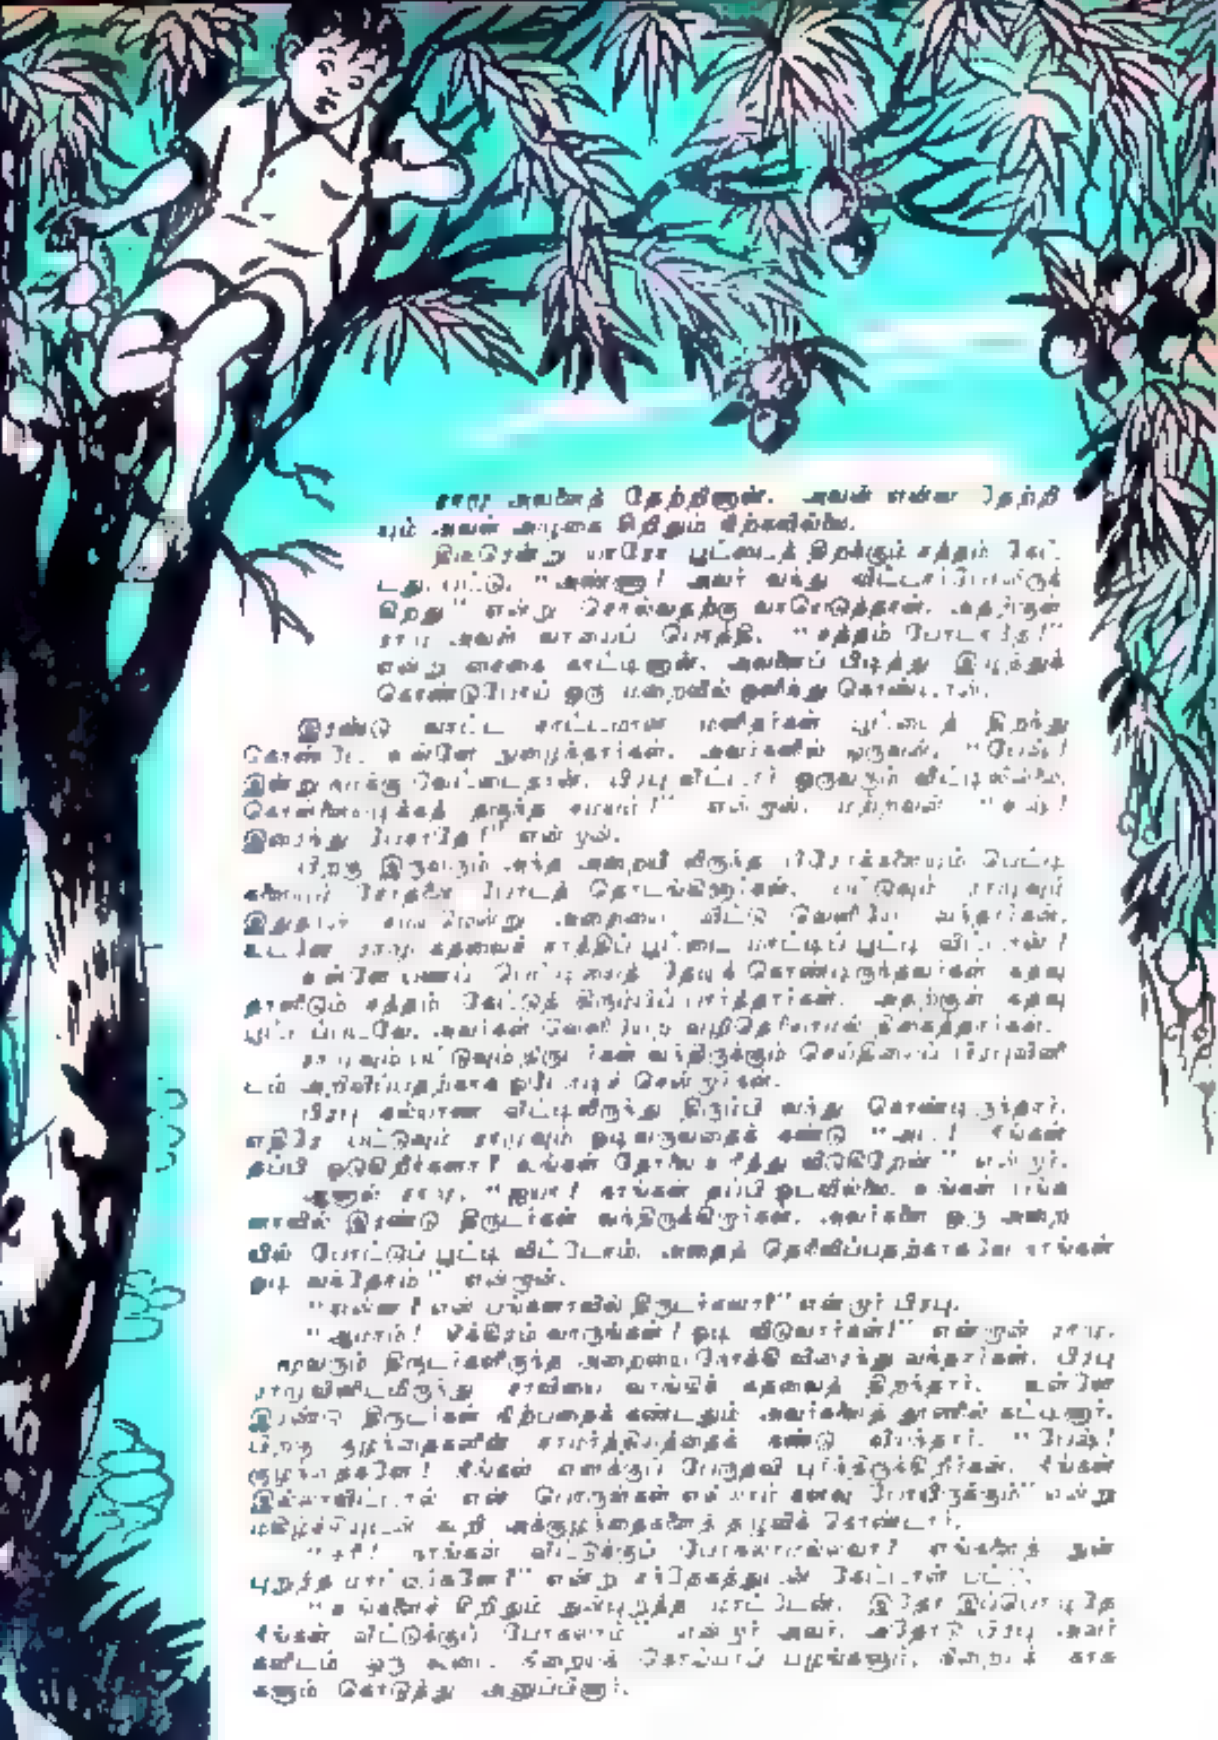 ராமு அவனைத் தேற்றினான். அவன் என்ன தேற்றி
யும் அவன் அழுகை சிறிதும் நிற்கவில்லை.
திடீரென்று யாரோ பூட்டைத் திறக்கும் சத்தம் கேட்
டது. பட்டு, "அண்ணா! அவர் வந்து விட்டார்போலிருக்
கிறது" என்று சொல்வதற்கு வாயெடுத்தான். அதற்குள்
ராமு அவன் வாயைப் பொத்தி, "சத்தம் போடாதே!"
என்று சைகை காட்டினான். அவனைப் பிடித்து இழுத்துக்
கொண்டுபோய் ஒரு மறைவில் ஒளிந்து கொண்டான்.
இரண்டு வாட்ட சாட்டமான மனிதர்கள் பூட்டைத் திறந்து
கொண்டு உள்ளே நுழைந்தார்கள். அவர்களில் ஒருவன், "பேஷ்!
இன்று நமக்கு வேட்டைதான். பிரபு வீட்டார் ஒருவரும் வீட்டிலில்லை.
கொள்ளையடிக்கத் தகுந்த சமயம்!" என்றான். மற்றவன் "உஷ்!
இரைந்து பேசாதே!" என்றான்.
பிறகு இருவரும் அந்த அறையி லிருந்த பீரோக்களையும் பெட்டி
களையும் சோதனை போடத் தொடங்கினார்கள். பட்டுவும் ராமுவும்
இதுதான் சமயமென்று அறையை விட்டு வெளியே வந்தார்கள்.
உடனே ராமு கதவைச் சாத்திப் பூட்டை மாட்டிப் பூட்டி விட்டான்!
உள்ளே பணப் பெட்டியைத் தேடிக் கொண்டிருந்தவர்கள் கதவு
தாளிடும் சத்தம் கேட்டுத் திரும்பிப் பார்த்தார்கள். அதற்குள் கதவு
பூட்டப்படவே, அவர்கள் வெளியேற வழிதெரியாமல் திகைத்தார்கள்.
ராமுவும் பட்டுவும் திருடர்கள் வந்திருக்கும் செய்தியைப் பிரபுவினி
டம் அறிவிப்பதற்காக ஓடோடிச் சென்றார்கள்.
பிரபு கல்யாண வீட்டிலிருந்து திரும்பி வந்து கொண்டிருந்தார்.
எதிரே பட்டுவும் ராமுவும் ஓடிவருவதைக் கண்டு "அட! நீங்கள்
தப்பி ஓடுகிறீர்களா? உங்கள் தோலை உரித்து விடுகிறேன்" என்றார்.
ஆனால் ராமு, "ஐயா! நாங்கள் தப்பி ஓடவில்லை. உங்கள் பங்க
ளாவில் இரண்டு திருடர்கள் வந்திருக்கிறார்கள். அவர்களை ஒரு அறை
யில் போட்டுப் பூட்டி விட்டோம். அதைத் தெரிவிப்பதற்காகவே நாங்கள்
ஓடி வந்தோம்" என்றான்.
"என்ன! என் பங்களாவில் திருடர்களா?" என்றார் பிரபு.
"ஆமாம்! சீக்கிரம் வாருங்கள்! ஓடி விடுவார்கள்!" என்றான் ராமு.
மூவரும் திருடர்களிருந்த அறையை நோக்கி விரைந்து வந்தார்கள். பிரபு
ராமுவினிடமிருந்து சாவியை வாங்கிக் கதவைத் திறந்தார். உள்ளே
இரண்டு திருடர்கள் நிற்பதைக் கண்டதும் அவர்களைத் தூணில் கட்டினார்.
பிறகு குழந்தைகளின் சாமர்த்தியத்தைக் கண்டு வியந்தார். "பேஷ்!
குழந்தைகளே! நீங்கள் எனக்குப் பேருதவி புரிந்திருக்கிறீர்கள். நீங்கள்
இல்லாவிட்டால் என் பொருள்கள் எல்லாம் களவு போயிருக்கும்" என்று
மகிழ்ச்சியுடன் கூறி அக்குழந்தைகளைத் தழுவிக் கொண்டார்.
"சரி! நாங்கள் வீட்டுக்குப் போகலாமல்லவா? எங்களைத் துன்
புறுத்த மாட்டீர்களே?" என்று சந்தேகத்துடன் கேட்டான் பட்டு.
"உங்களைச் சிறிதும் துன்புறுத்த மாட்டேன். இதோ இப்பொழுதே
நீங்கள் வீட்டுக்குப் போகலாம்" என்றார் அவர். அதோடு பிரபு அவர்
களிடம் ஒரு கூடை நிறையக் கொய்யாப் பழங்களும், நிறையக் காசு
களும் கொடுத்து அனுப்பினார்.